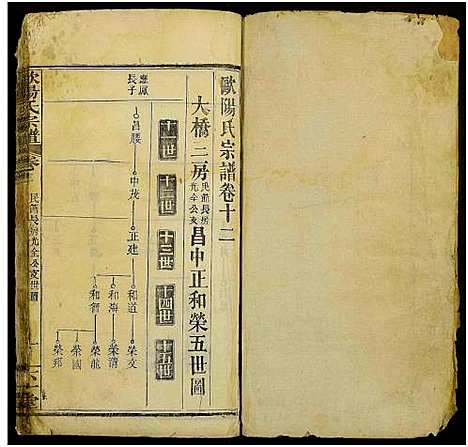 歐陽氏宗譜卷十二
大橋二房民前長房光全公支昌中正和榮五世圖
十一世
十二世
十三世
十四世
十五世
應鳳長子
昌應
中茂
正建
和道
和海
和智
榮文
榮清
榮龍
榮國
榮邦
歐陽氏宗譜
卷
民前長房光全公支世圖